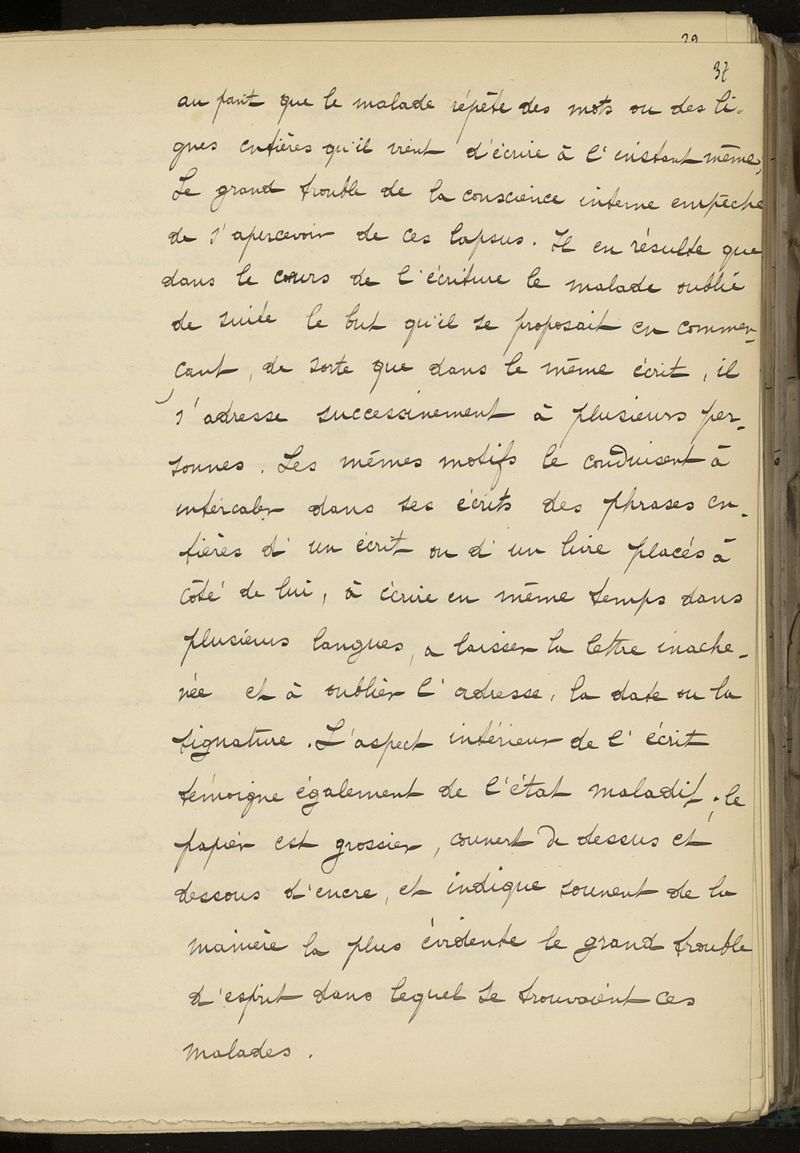 29
37
au point que le malade répète des mots ou des li-
gnes entières qu'il vient d'écrire à l'instant même,
Le grand trouble de la conscience interne empêche
de s'apercevoir de ces lapsus. Il en résulte que
dans le cours de l'écriture le malade oublie
de suite le but qu'il se proposait en commen-
çant, de sorte que dans le même écrit, il
s'adresse successivement à plusieurs per-
sonnes. Les mêmes motifs le conduisent à
intercaler dans ses écrits des phrases en-
tières d'un écrit ou d'un livre placés à
côté de lui, à écrire en même temps dans
plusieurs langues, a laisser la lettre inache-
vée et à oublier l'adresse, la date ou la
signature. L'aspect intérieur de l'écrit
témoigne également de l'état maladif; le
papier est grossier, couvert de dessus et
dessous d'encre, et indique souvent de la
manière la plus évidente le grand trouble
d'esprit dans lequel se trouvaient ces
malades.